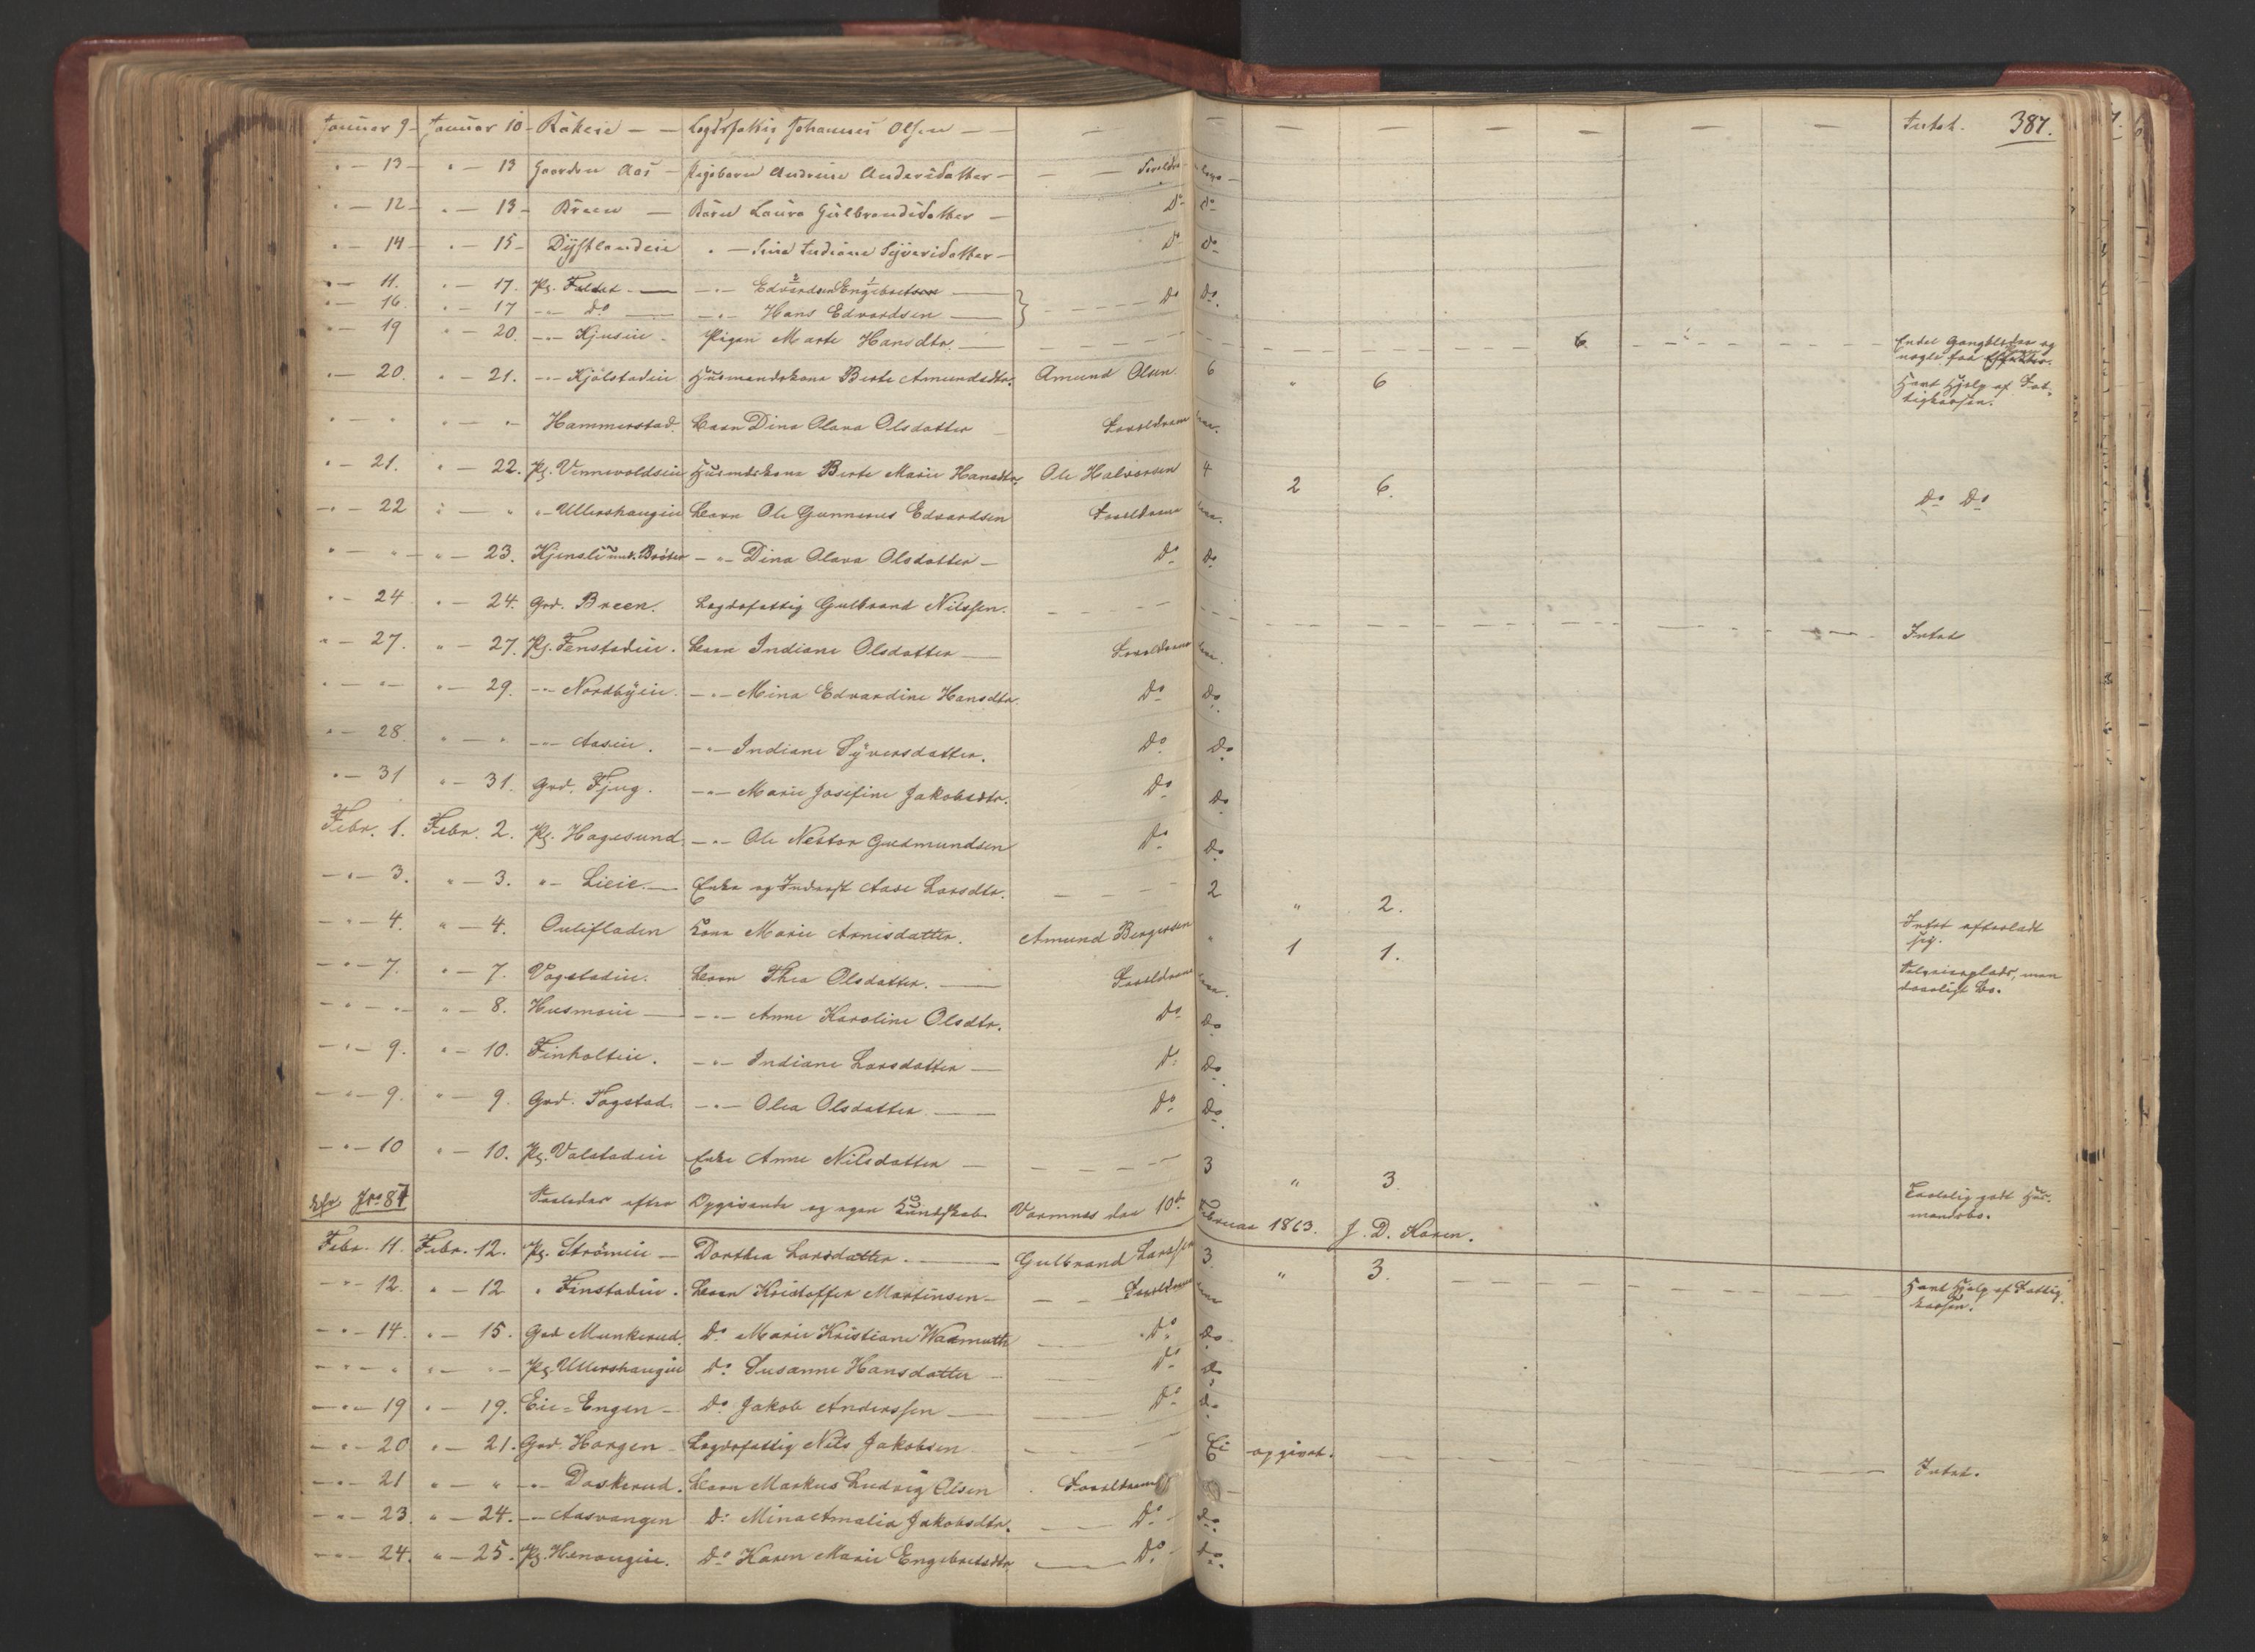 387.
Januar 9 - Januar 10 - Rakeie - - Lægdsfattig Johannes Olsen - - - - - - - - - - Intet.
" - 13 - " - 13 Gaarden Aas - Pigebarn Andrine Andersdatter - - - Foreldre - lever -
" - 12 - " - 13 - Breen - Barn Laura Gulbrandsdatter - Do Do
" - 14 - " - 15 - Dystlandeie " - Indiane Syversdatter - Do Do
" - 11. " - 17. Pl. Faldet - - " - Edvard Engebretsen - Do Do.
" - 16. " - 17 - " - Do - - " - Hans Edvardsen -
" - 19 " - 20. - " - Kjuseie - Pigen Marte Hansdtr. - - - - 6 - - Endel Gangklæder og nogle faa Effekter.
" - 20. " - 21. - " - Kjølstadeie Husmandskone Berte Amundsdtr. Amund Olsen. 6 " 6 Havt Hjelp af Fattigkassen.
" - " " - " - Hammerstad. Barn Dina Olava Olsdatter - Foreldrene leve.
" - 21. " - 22. Pl. Vennevoldseie Husmdskone Berte Marie Hansdtr. Ole Halvorsen 4 2 6. Do Do
- " - 22 " - " " - Ullershaugeie Barn Ole Gunnerius Edvardsen Foreldrene leve.
" - " - " - 23. Kjensli und. Braater - " - Dina Olava Olsdatter - Do Do
" - 24 " - 24. Grd. Breen. Lægdsfattig Gulbrand Nilssen. - - - - - Intet
" - 27. " - 27. Pl. Fenstadeie. Barn Indiane Olsdatter - Foreldrene leve.
" - " - " - 29. - " - Nordbyeie. - " - Mina Edvardine Hansdtr. Do Do.
" - 28. " - " - " - Aaseie. - " - Indiane Syversdatter. Do Do
" - 31 " - 31. Grd. Fjug. - " - Marie Josefine Jakobsdtr. Do Do
Febr. 1. Febr. 2. Pl. Hagesund. - " - Ole Nestor Gudmundsen Do Do
- " - 3. " - 3. " - Lieie. - Enke og Inderst Aase Larsdtr. - - - 2 " 2. Intet efterladt sig.
- " - 4. " - 4. Oulifladen Kone Marie Arnesdatter. Amund Bergersen " 1 1. Selveierplads, men daarligt Bo.
- " - 7. " - 7. Vogstadeie. Barn Thea Olsdatter. - Foreldrene leve.
- " - " - " - 8. Husmoeie - - " - Anne Karoline Olsdtr. Do Do
- " - 9. " - 10. Finholteie. - " - Indiane Larsdatter - Do Do.
- " - 9. " - 9. Grd. Fogstad. - " - Olea Olsdatter. - Do Do.
- " - 10 " - 10. Pl. Valstadeie Enke Anne Nilsdatter - - - - - 3 " 3. Taalelig godt Husmandsbo.
Saaledes efter Opgivende og egen Kundskab Vormnes den 10de Februar 1863. J. D. Karen.
Febr. 11. Febr. 12. Pl. Strömeie - Dorthea Larsdatter. - Gulbrand Larssen 3. " 3. - - - Havt Hjelp af Fattigkassen.
- " - 12. " - 12 " Finstadeie. Barn Kristoffer Martinsen - - - Foreldrene leve
- " - 14. " - 15. Grd Munkerud. Do Marie Kristiane Warmuth - Do Do
- " - " " - " - Pl. Ullershaugeie Do. Susanne Hansdatter - - Do Do
- " - 19 " - 19. Eie = Engen - Do Jakob Anderssen - - Do Do
- " - 20 " - 21. Grd. Horgen - Lægdsfattig Nils Jakobsen - - - Ei opgivet. - - - Intet.
- " - 21 " - " - " - Daskerud. Barn Markus Ludvig Olsen. Foreldrene
- " - 23. " - 24. - " - Aasvangen Do. Mina Amalia Jakobsdtr. - - Do - Do.
- " - 24. " - 25. Pl. Henaugeie. Do Karen Marie Engebretsdtr - - Do - Do.